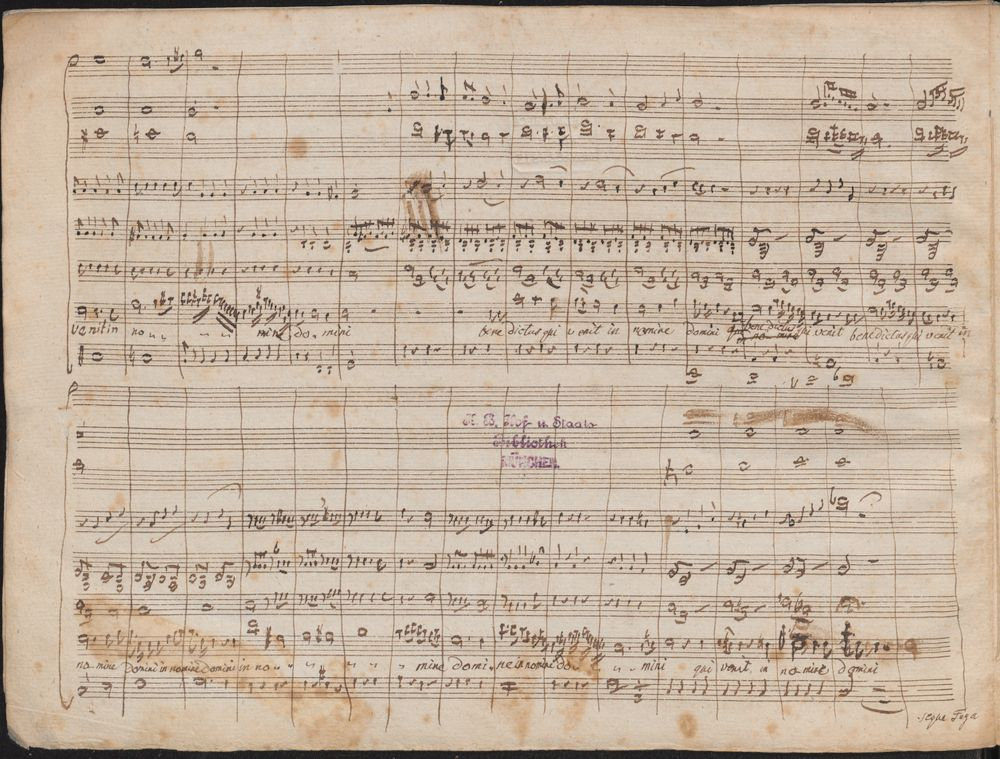 venit in no - - mine do - mini bene dictus qui venit in nomine domini bene dictus qui venit benedictus qui venit in
in no mine
K. B. Hof- u. Staats-
Bibliothek
MÜNCHEN.
no - mine domini in nomine domini in no - - - - - - mine domi - ne in nomine do - - mini qui venit in nomine domini
segue Fuga